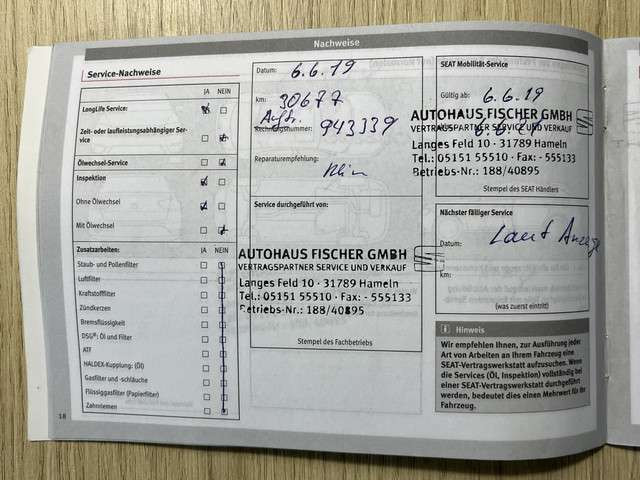 Nachweise
Service-Nachweise
JA NEIN
LongLife Service:
Zeit- oder laufleistungsabhängiger Ser-
vice
Ölwechsel-Service
Inspektion
Ohne Ölwechsel
Mit Ölwechsel
Zusatzarbeiten: JA NEIN
Staub- und Pollenfilter
Luftfilter
Kraftstofffilter
Zündkerzen
Bremsflüssigkeit
DSG®: Öl und Filter
ATF
HALDEX-Kupplung: (Öl)
Gasfilter und -schläuche
Flüssiggasfilter (Papierfilter)
Zahnriemen
18
Datum: 6.6.19
km: 30677
Auftr.
Rechnungsnummer: 943339
Reparaturempfehlung:
Service durchgeführt von:
AUTOHAUS FISCHER GMBH
VERTRAGSPARTNER SERVICE UND VERKAUF
Langes Feld 10 · 31789 Hameln
Tel.: 05151 55510 · Fax: - 555133
Betriebs-Nr.: 188/40895
Stempel des Fachbetriebs
SEAT Mobilität-Service
Gültig ab: 6.6.19
AUTOHAUS FISCHER GMBH
VERTRAGSPARTNER SERVICE UND VERKAUF
Langes Feld 10 · 31789 Hameln
Tel.: 05151 55510 · Fax: - 555133
Betriebs-Nr.: 188/40895
Stempel des SEAT Händlers
Nächster fälliger Service
Datum: Laut Anzeige
km:
(was zuerst eintritt)
i Hinweis
Wir empfehlen Ihnen, zur Ausführung jeder
Art von Arbeiten an Ihrem Fahrzeug eine
SEAT-Vertragswerkstatt aufzusuchen. Wenn
die Services (Öl, Inspektion) vollständig bei
einer SEAT-Vertragswerkstatt durchgeführt
werden, bedeutet dies einen Mehrwert für Ihr
Fahrzeug.